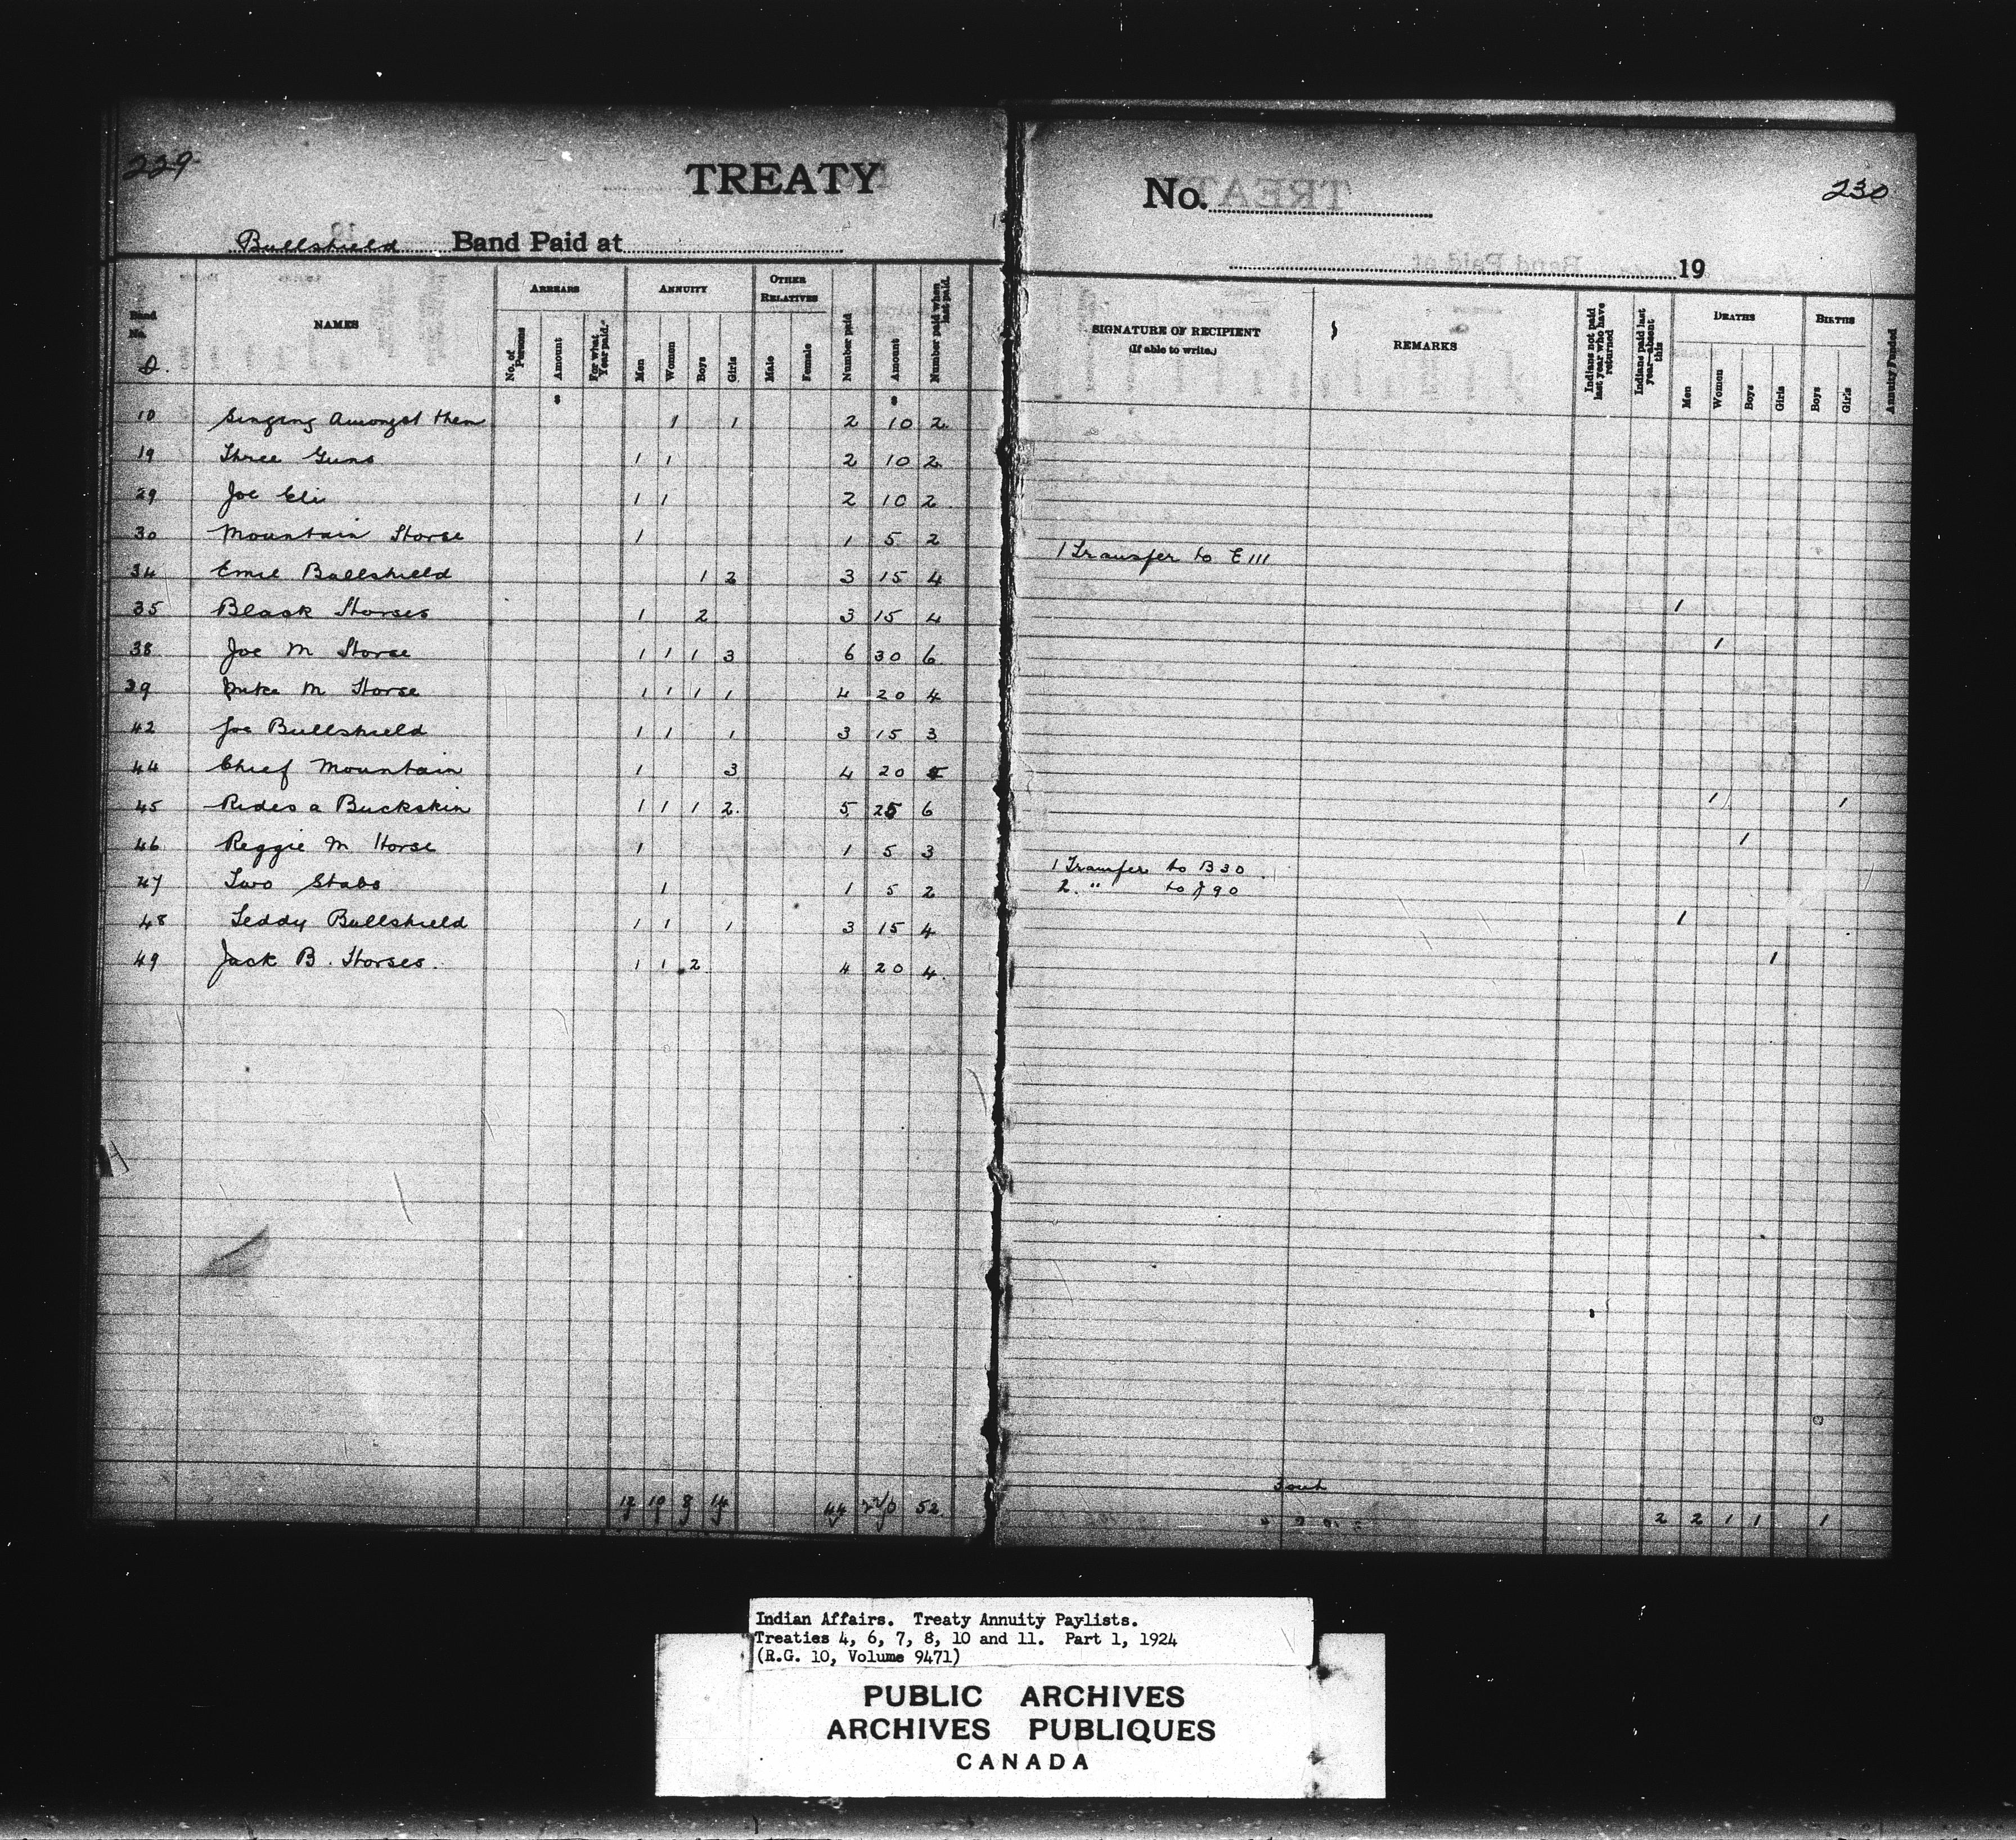 229
TREATY
Bullshield Band Paid at
Band No.
D.
NAMES
ARREARS
No. of Persons
Amount
For what Year paid.
ANNUITY
Men
Women
Boys
Girls
OTHER RELATIVES
Male
Female
Number paid
Amount
Number paid when last paid.
$ $
10 Singing Amongst them 1 1 2 10 2
19 Three Guns 1 1 2 10 2
29 Joe Eli 1 1 2 10 2
30 Mountain Horse 1 1 5 2
34 Emil Bullshield 1 2 3 15 4
35 Black Horses 1 2 3 15 4
38 Joe M Horse 1 1 1 3 6 30 6
39 Mike M Horse 1 1 1 1 4 20 4
42 Joe Bullshield 1 1 1 3 15 3
44 Chief Mountain 1 3 4 20 5
45 Rides a Buckskin 1 1 1 2 5 25 6
46 Reggie M Horse 1 1 5 3
47 Two Stabs 1 1 5 2
48 Teddy Bullshield 1 1 1 3 15 4
49 Jack B. Horses. 1 1 2 4 20 4
52
No.
230
19
SIGNATURE OF RECIPIENT
(If able to write.)
REMARKS
Indians not paid last year who have returned
Indians paid last year—absent this
DEATHS
Men
Women
Boys
Girls
BIRTHS
Boys
Girls
Annuity Funded
1 Transfer to E 111
1
1
1 1
1
1 Transfer to B 30
2. " to J 90
1
1
2 2 1 1 1
Indian Affairs. Treaty Annuity Paylists.
Treaties 4, 6, 7, 8, 10 and 11. Part 1, 1924
(R.G. 10, Volume 9471)
PUBLIC ARCHIVES
ARCHIVES PUBLIQUES
CANADA